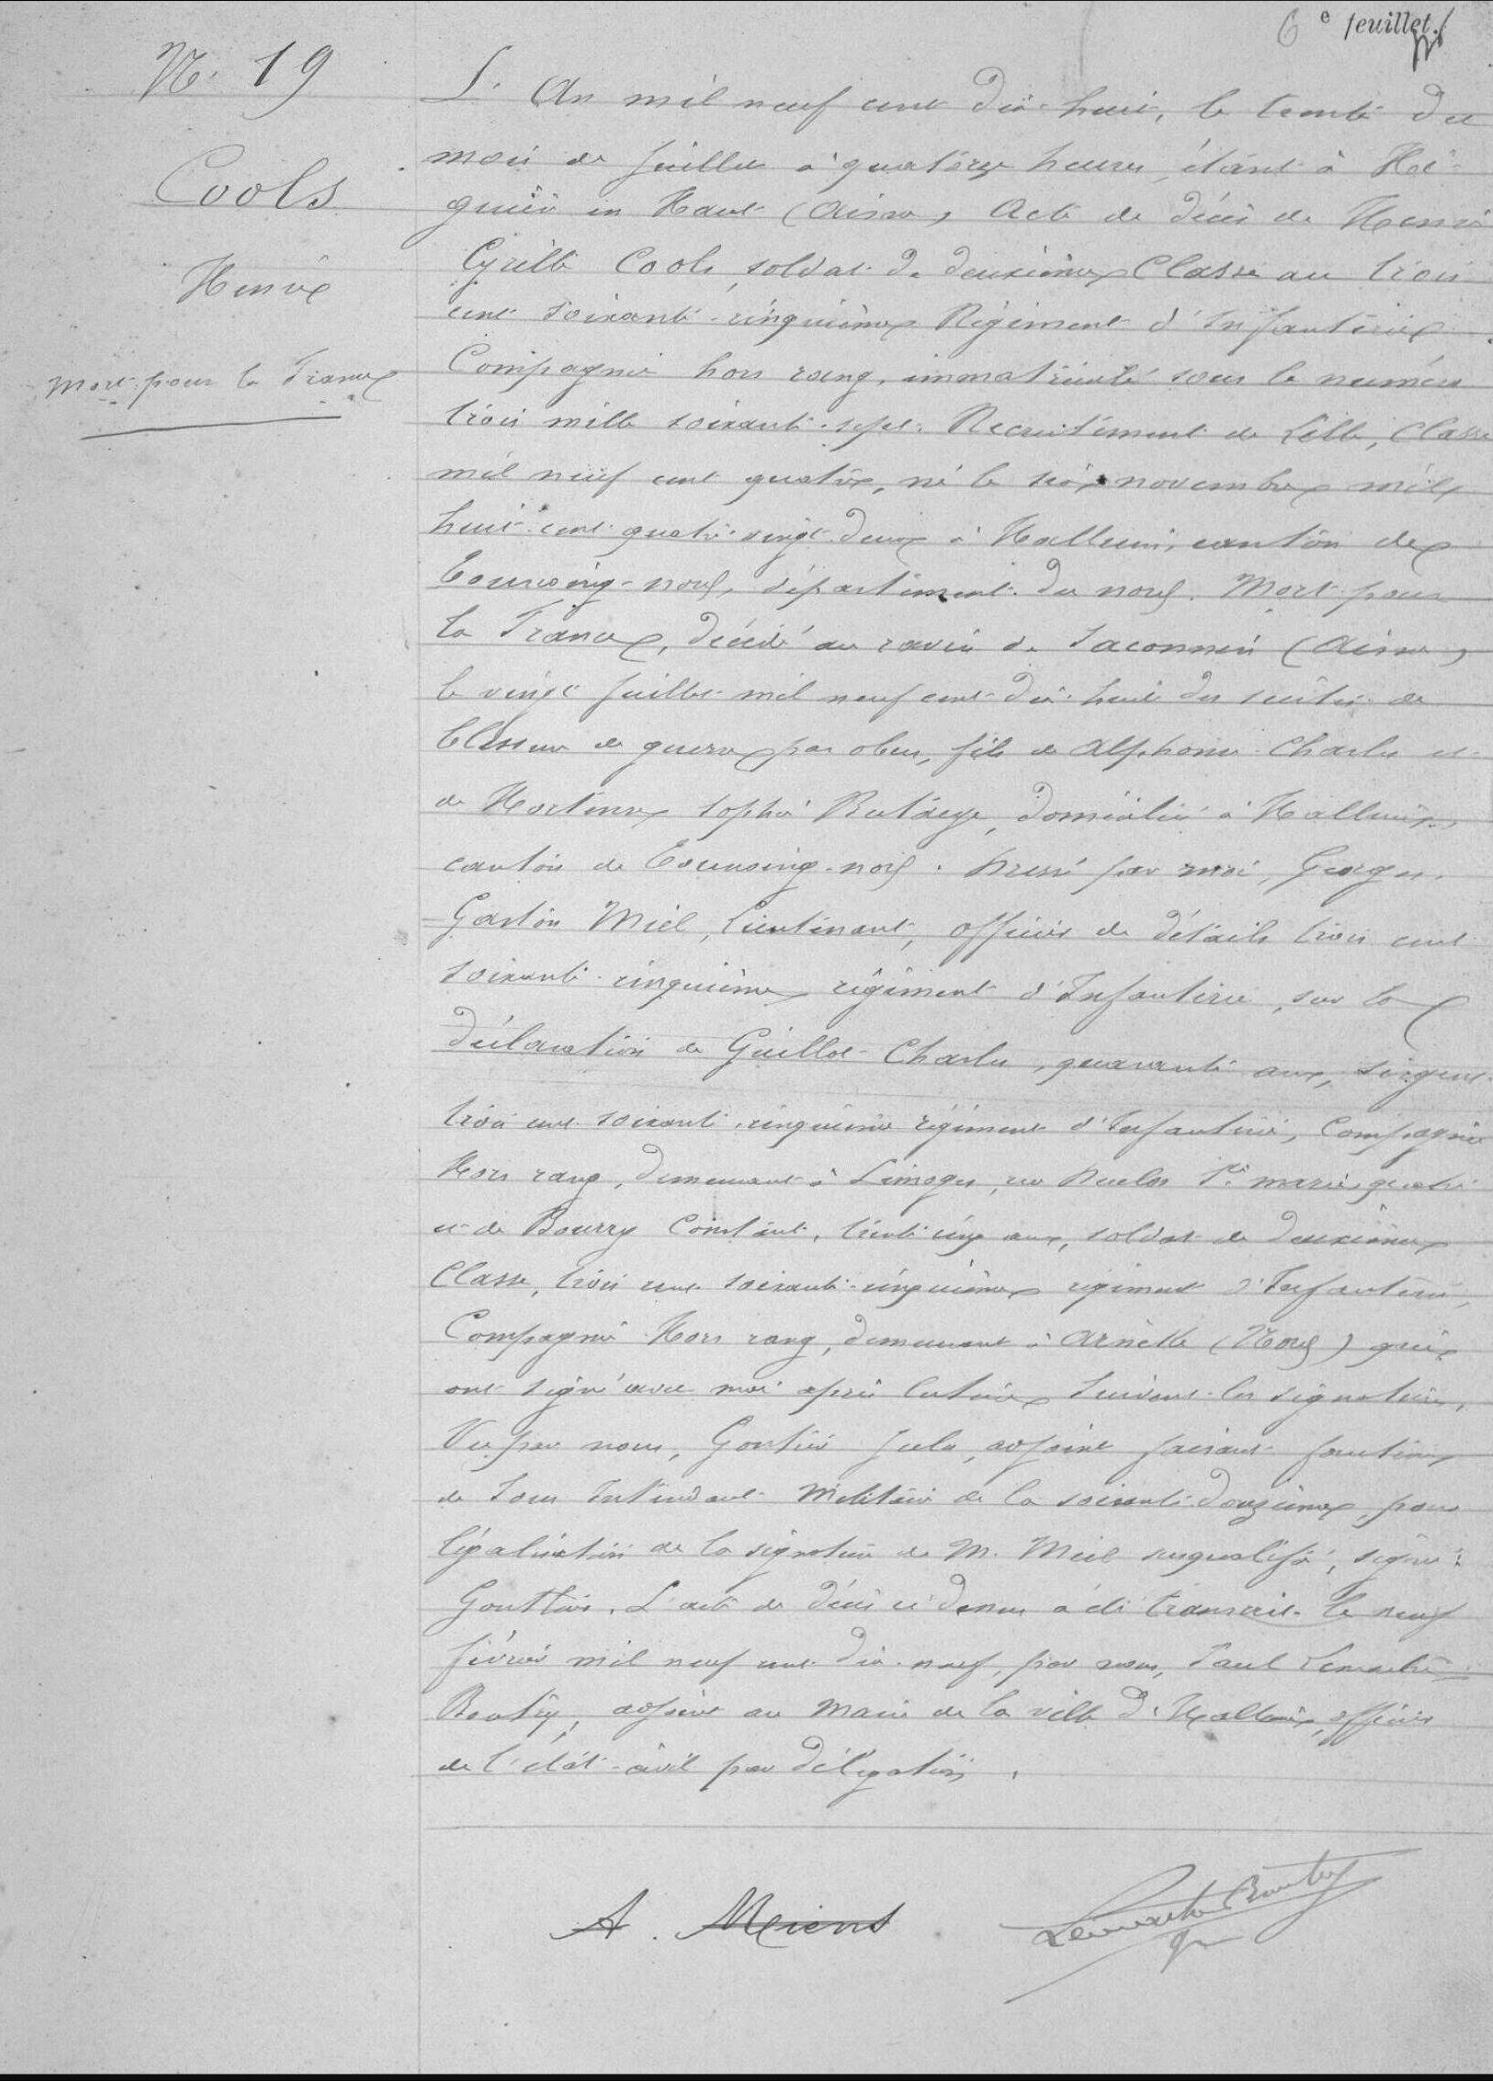 6e feuillet
N. 19
Cools
Henri
Mort pour la France
L'An mil neuf cent dix-huit, le trente du
mois de Juillet à quatorze heures, étant à
en Haut (Aisne), Acte de décès de Henri
Cyrille Cools, soldat de deuxième Classe au trois
cent soixante-cinquième Régiment d'Infanterie
Compagnie hors rang, immatriculé sous le numéro
trois mille soixante-sept. Recrutement de Lille, Classe
mil neuf cent quatre, né le six novembre mil
huit cent quatre-vingt-deux à Halluin, canton de
Tourcoing-nord, département du nord. Mort pour
la France, décédé au ravin de Saconnin (Aisne)
le vingt Juillet mil neuf cent dix-huit des suites de
blessure de guerre par obus, fils de Alphonse Charles et
de Hortense Sophie, domicilié à Halluin,
canton de Tourcoing-nord. Dressé par moi, Georges
Gaston Miel, Lieutenant, officier de détails trois cent
soixante-cinquième régiment d'Infanterie, sur la
déclaration de Guillot Charles, quarante ans, sergent
trois cent soixante-cinquième régiment d'Infanterie, Compagnie
Hors rang, demeurant à Limoges, Ste Marie, quatre
et de Bourry Constant, trente cinq ans, soldat de deuxième
Classe, trois cent soixante-cinquième régiment d'Infanterie,
Compagnie Hors rang, demeurant à (Nord) qui
ont signé avec moi après lecture. Suivent les signatures.
Vu par nous, Jules, adjoint faisant fonction
de Sous Intendant Militaire de la soixante-douzième, pour
légalisation de la signature de M. Miel susqualifié, signé:
L'acte de décès ci-dessus a été transcrit le neuf
février mil neuf cent dix-neuf, par nous, Paul Lemaitre
Boutry, adjoint au Maire de la ville d'Halluin, officier
de l'état-civil par délégation.
A. Meiens Lemaitre Boutry